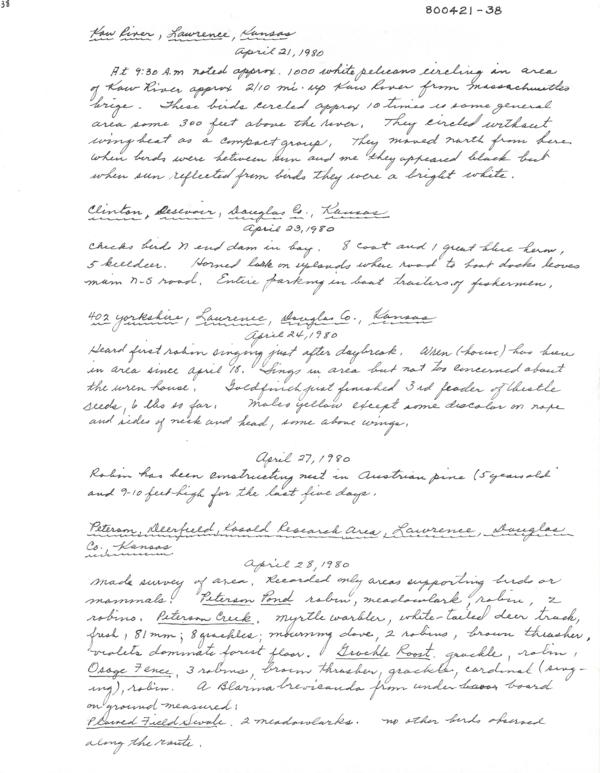 38
800421-38
Kaw River, Lawrence, Kansas
April 21, 1980
At 9:30 A.m noted approx. 1000 white pelicans circling in area
of Kaw River approx 2/10 mi. up Kaw River from Massachusetts
brige. These birds circled approx 10 times in same general
area some 300 feet above the river. They circled without
wingbeat as a compact group. They moved north from here.
When birds were between sun and me they appeared black but
when sun reflected from birds they were a bright white.
Clinton, Resevoir, Douglas Co., Kansas
April 23, 1980
Checks birds N end dam in bay. 8 coot and 1 great blue heron,
5 killdeer. Horned lark on uplands where road to boat docks leaves
main N-S road. Entire parking in boat trailers of fishermen.
402 Yorkshire, Lawrence, Douglas Co., Kansas
April 24, 1980
Heard first robin singing just after daybreak. Wren (house) has been
in area since april 18. Sings in area but not too concerned about
the wren house. Goldfinch just finished 3rd feeder of thistle
seeds, 6 lbs so far. Males yellow except some discolor on nape
and sides of neck and head, some above wings.
April 27, 1980
Robin has been constructing nest in Austrian pine (5 years old
and 9-10 feet high for the last five days.
Peterson, Deerfield, Kasold Research Area, Lawrence, Douglas
Co., Kansas
April 28, 1980
Made survey of area. Recorded only areas supporting birds or
mammals: Peterson Pond robin, meadowlark, robin, 2
robins. Peterson Creek. Myrtle warbler, white-tailed deer track,
fresh, 81 mm; 8 grackles; mourning dove, 2 robins, brown thrasher,
violets dominate forest floor. Grackle Roost. grackle, robin,
Osage Fence, 3 robins, brown thrasher, grackle, cardinal (sing-
ing), robin. A Blarina brevicauda from under board
on ground measured:
Plowed Field Swale. 2 meadowlarks. no other birds observed
along the route.